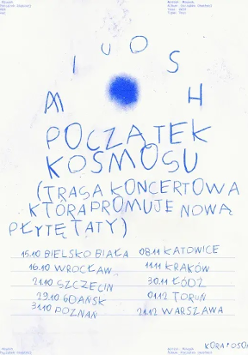 MIUOSH
POCZĄTEK
KOSMOSU
(TRASA KONCERTOWA
KTÓRA PROMUJE NOWĄ
PŁYTĘ TATY)
15.10 BIELSKO BIAŁA 08.11 KATOWICE
16.10 WROCŁAW 11.11 KRAKÓW
21.10 SZCZECIN 30.11 ŁÓDŹ
29.10 GDAŃSK 01.12 TORUŃ
31.10 POZNAŃ 21.12 WARSZAWA